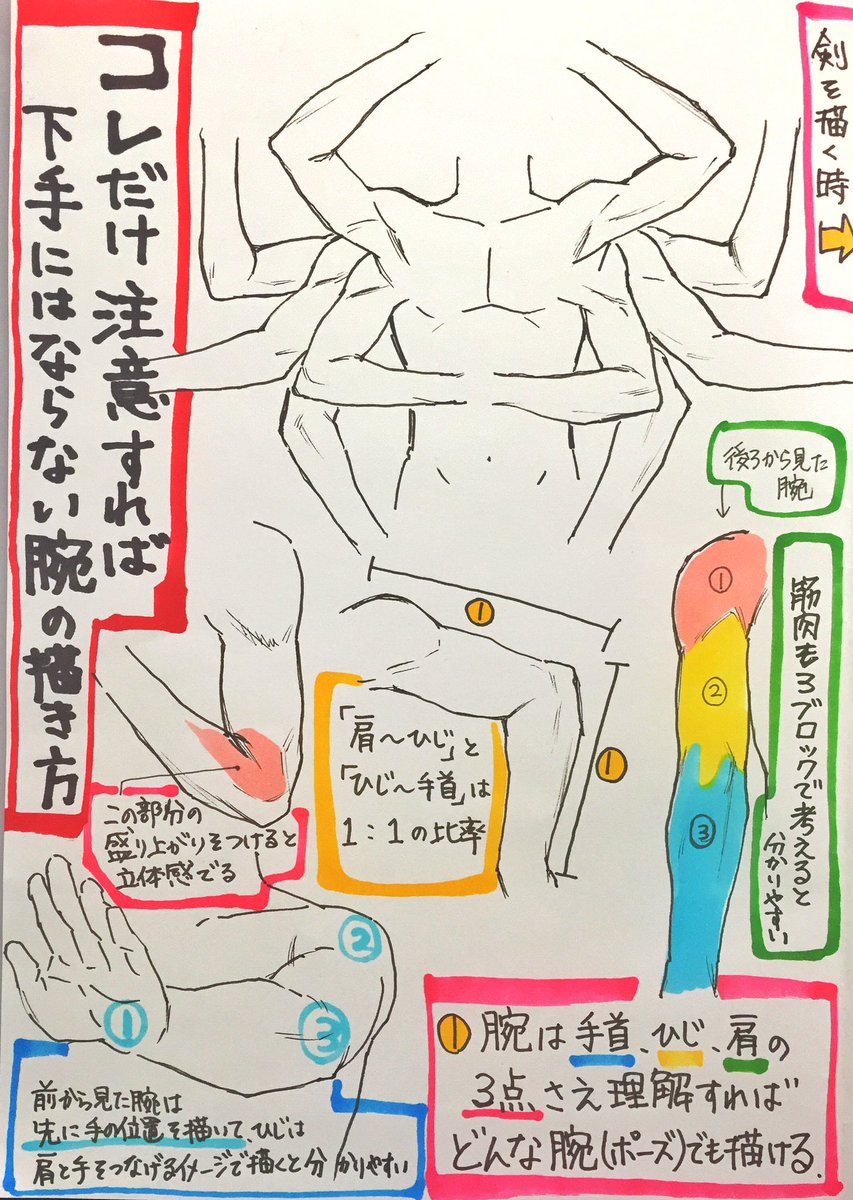 コレだけ注意すれば
下手にはならない腕の描き方
剣を描く時
後ろから見た
腕
①
②
③
筋肉も3ブロックで考えると
分かりやすい
①
①
「肩〜ひじ」と
「ひじ〜手首」は
1:1の比率
この部分の
盛り上がりをつけると
立体感でる
①
②
③
前から見た腕は
先に手の位置を描いて、ひじは
肩と手をつなげるイメージで描くと分かりやすい
①腕は手首、ひじ、肩の
3点さえ理解すれば
どんな腕(ポーズ)でも描ける.